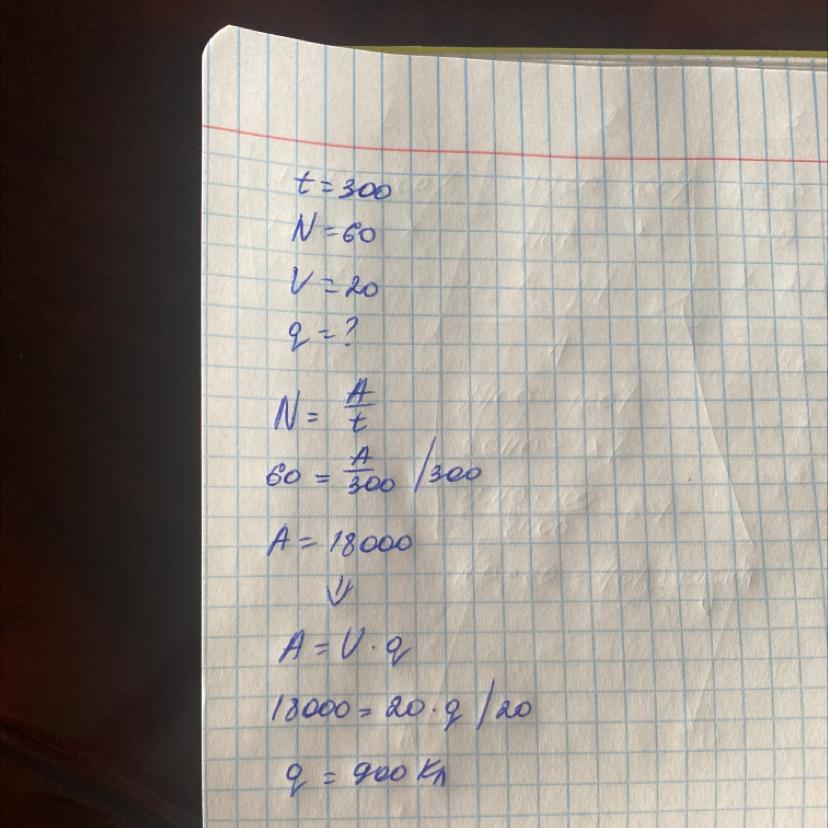 t = 300
N = 60
V = 20
q = ?
N = A/t
60 = A/300 /300
A = 18000
⇓
A = U · q
18000 = 20 · q / 20
q = 900 Кл